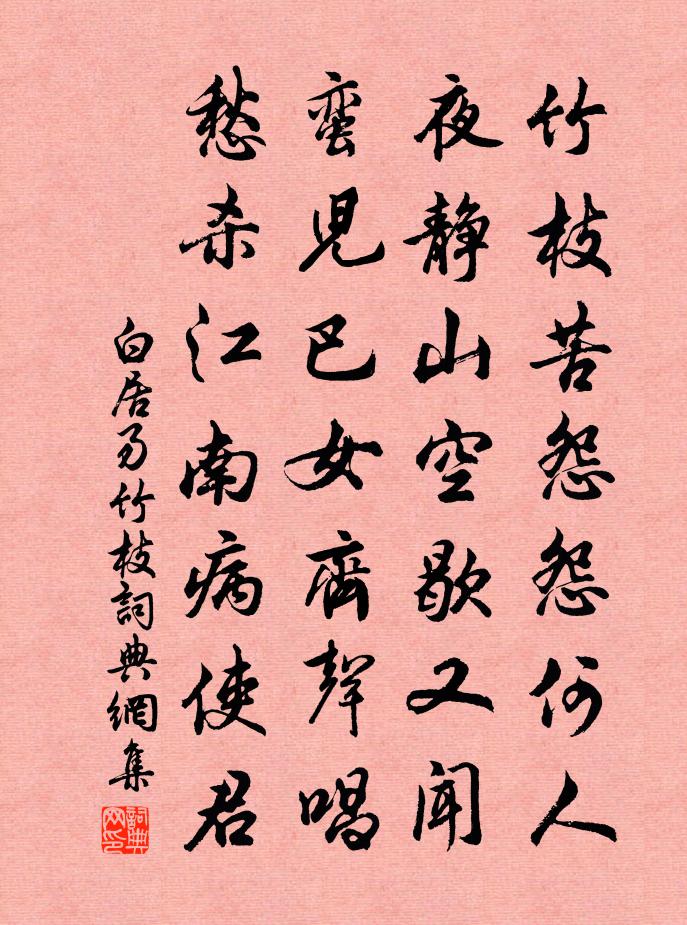 竹枝苦怨怨何人
夜静山空歇又闻
蛮児巴女齊聲唱
愁杀江南病使君
白居易竹枝詞典網集
詞典网印